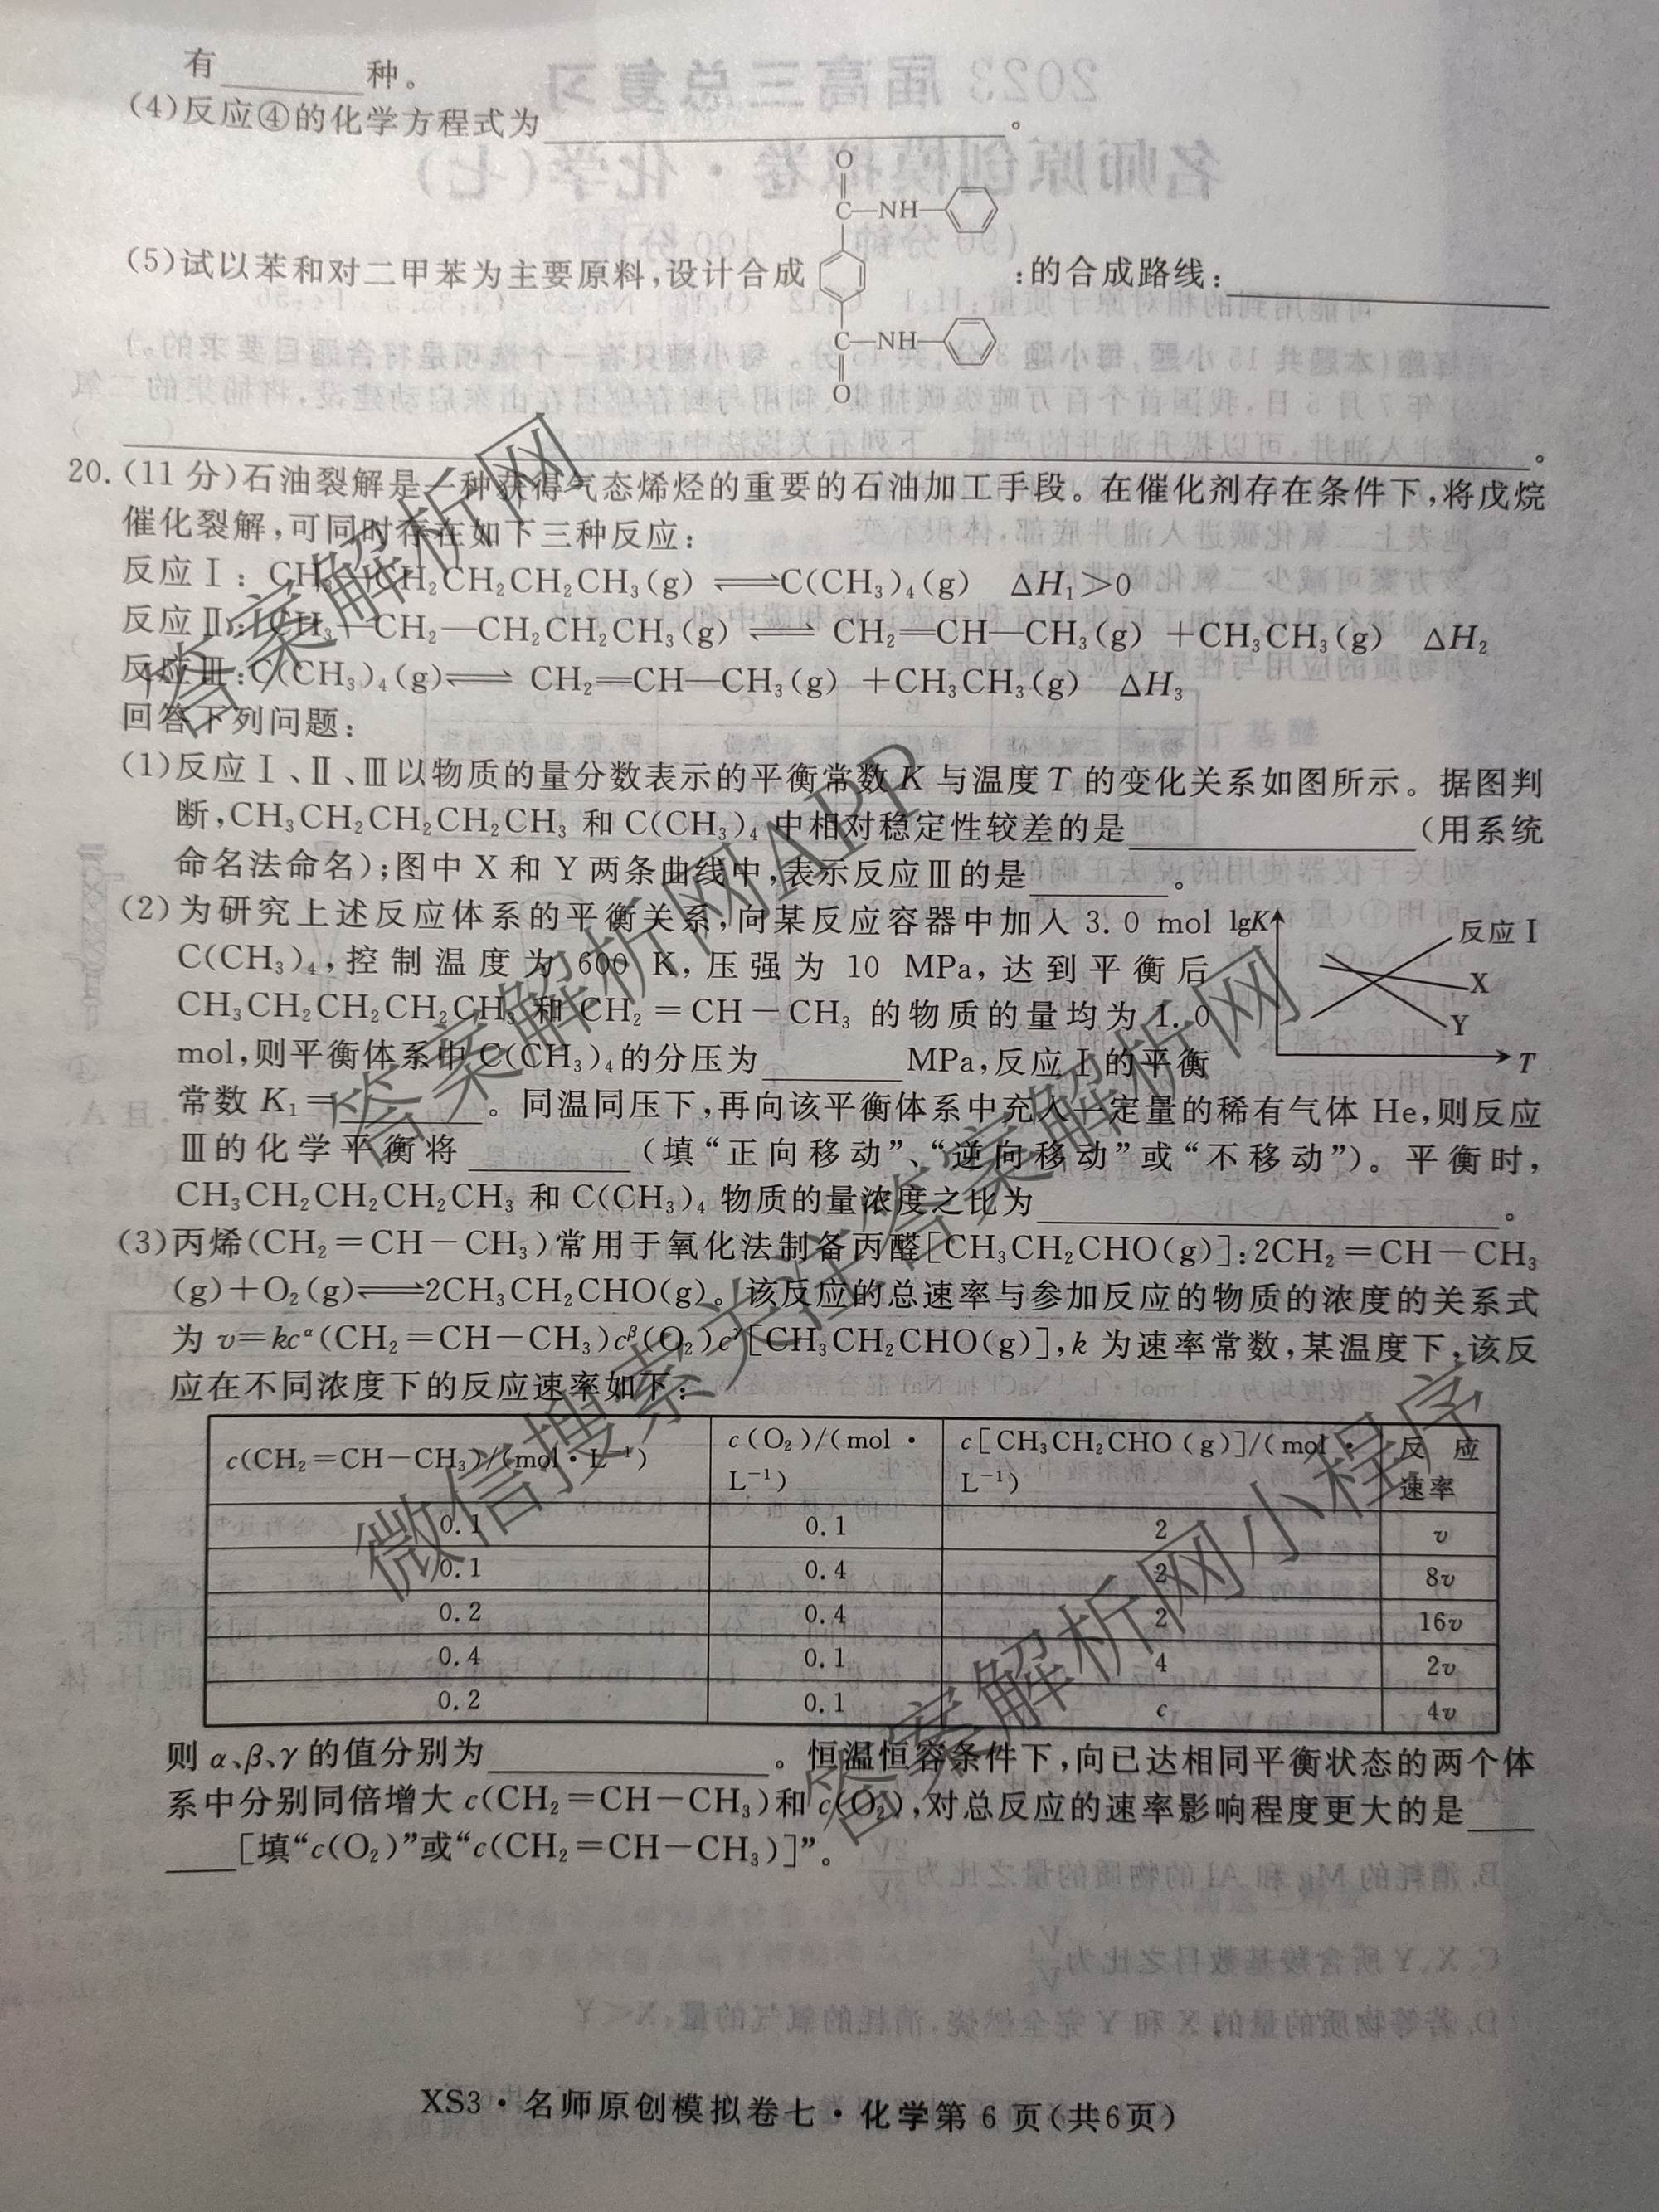 有______种。
(4)反应④的化学方程式为______。
O
C—NH—
(5)试以苯和对二甲苯为主要原料,设计合成 :的合成路线:______
C—NH—
O
______。
20.(11分)石油裂解是一种获得气态烯烃的重要的石油加工手段。在催化剂存在条件下,将戊烷
催化裂解,可同时存在如下三种反应:
反应Ⅰ: CH₃—CH₂CH₂CH₂CH₃(g) ⇌ C(CH₃)₄(g) ΔH₁>0
反应Ⅱ: CH₃—CH₂—CH₂CH₂CH₃(g) ⇌ CH₂=CH—CH₃(g) +CH₃CH₃(g) ΔH₂
反应Ⅲ:C(CH₃)₄(g) ⇌ CH₂=CH—CH₃(g) +CH₃CH₃(g) ΔH₃
回答下列问题:
(1)反应Ⅰ、Ⅱ、Ⅲ以物质的量分数表示的平衡常数K与温度T的变化关系如图所示。据图判
断,CH₃CH₂CH₂CH₂CH₃和C(CH₃)₄中相对稳定性较差的是______(用系统
命名法命名);图中X和Y两条曲线中,表示反应Ⅲ的是______。
(2)为研究上述反应体系的平衡关系,向某反应容器中加入3.0 mol
C(CH₃)₄,控制温度为600 K,压强为10 MPa,达到平衡后
CH₃CH₂CH₂CH₂CH₃和CH₂=CH-CH₃的物质的量均为1.0
mol,则平衡体系中C(CH₃)₄的分压为______MPa,反应Ⅰ的平衡
lgK
反应Ⅰ
X
Y
T
常数K₁=______。同温同压下,再向该平衡体系中充入一定量的稀有气体He,则反应
Ⅲ的化学平衡将______(填“正向移动”、“逆向移动”或“不移动”)。平衡时,
CH₃CH₂CH₂CH₂CH₃和C(CH₃)₄物质的量浓度之比为______。
(3)丙烯(CH₂=CH-CH₃)常用于氧化法制备丙醛[CH₃CH₂CHO(g)]:2CH₂=CH-CH₃
(g)+O₂(g)⇌2CH₃CH₂CHO(g)。该反应的总速率与参加反应的物质的浓度的关系式
为v=kcᵅ(CH₂=CH-CH₃)cᵝ(O₂)cᵞ[CH₃CH₂CHO(g)],k为速率常数,某温度下,该反
应在不同浓度下的反应速率如下:
c(CH₂=CH-CH₃)/(mol·L⁻¹) c(O₂)/(mol·L⁻¹) c[CH₃CH₂CHO(g)]/(mol·L⁻¹) 反应速率
0.1 0.1 2 v
0.1 0.4 2 8v
0.2 0.4 2 16v
0.4 0.1 4 2v
0.2 0.1 c 4v
则α、β、γ的值分别为______。恒温恒容条件下,向已达相同平衡状态的两个体
系中分别同倍增大c(CH₂=CH-CH₃)和c(O₂),对总反应的速率影响程度更大的是____
____[填“c(O₂)”或“c(CH₂=CH-CH₃)]”。
XS3·名师原创模拟卷七·化学第6页(共6页)
答案解析网
答案解析网APP
微信搜索关注答案解析网
答案解析网小程序